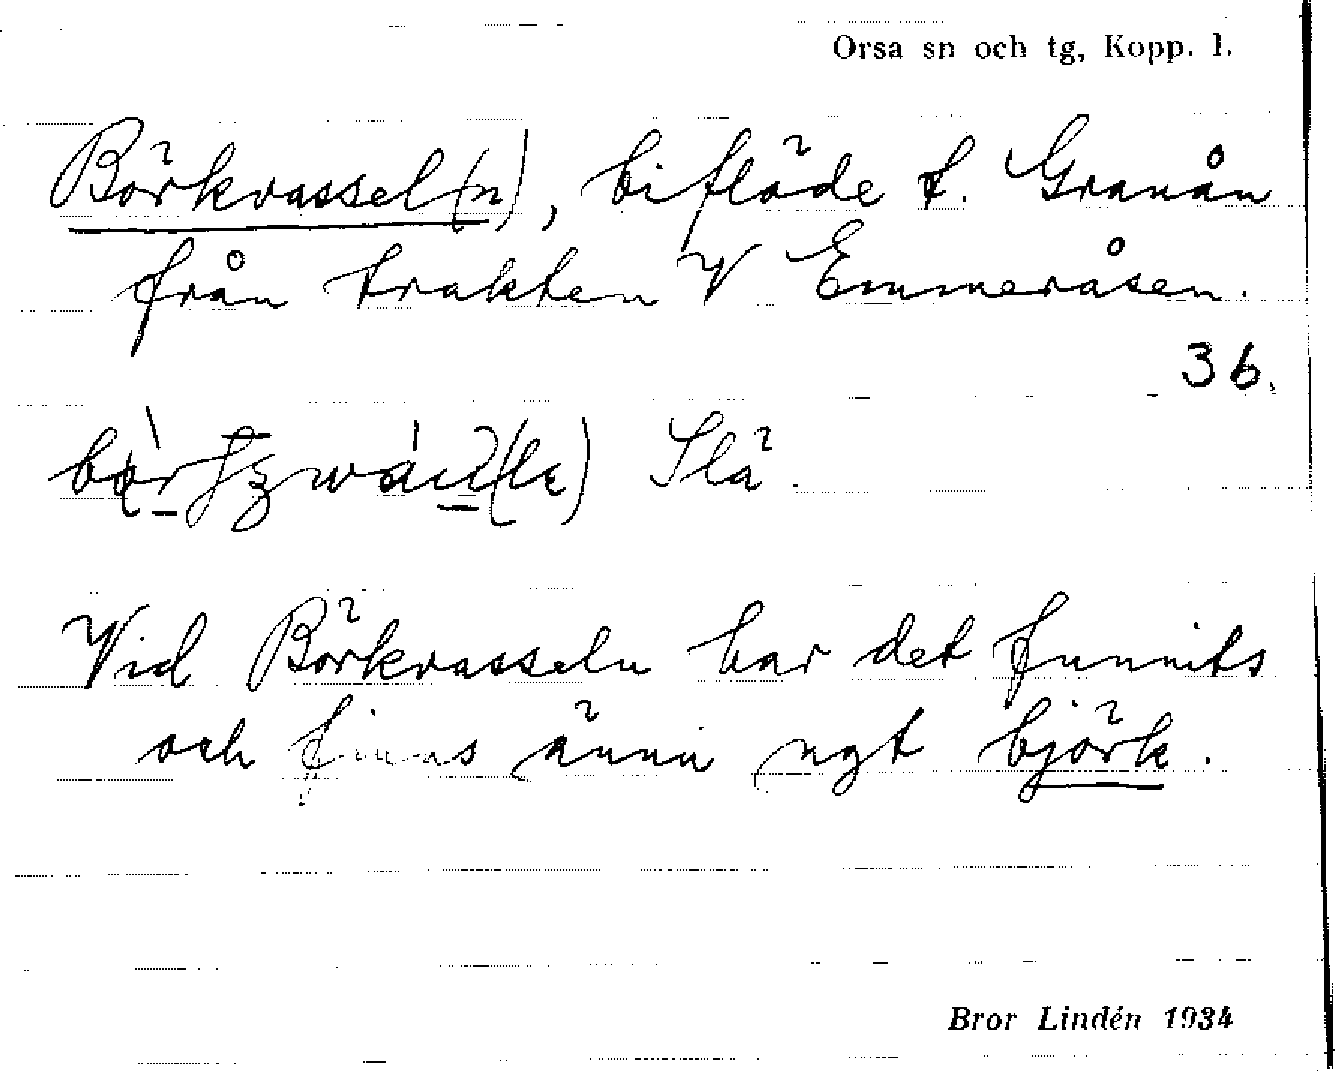 Orsa sn och tg, Kopp. l.
Börkvassel(n), biflöde t. Granån
från trakten V Emmeråsen.
36.
Slä.
Vid Börkvasseln har det funnits
och finns ännu ngt björk.
Bror Lindén 1934